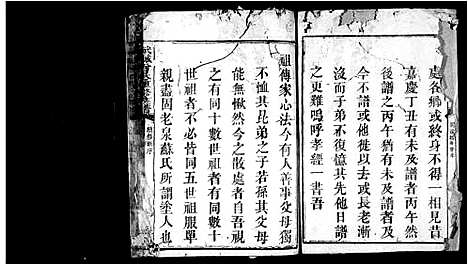 處各鄉或終身不得一見昔
嘉慶丁丑有未及譜者丙午然
後譜之丙午有未及譜者及今
不同譜其然也或長老漸
次凋謝弟不復憶其先他日譜
之更難嗚呼孝經一書吾
祖傳家心法今有人善事父母獨
不恤其昆弟之子若孫其父母
能無愀然今之散處者自吾
之有同十數世祖者有同數十
世祖者有同五世祖服單
親盡固老泉蘇氏所謂塗人也